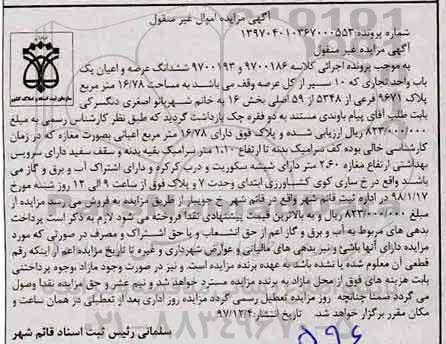 آگهی مزایده اموال غیر منقول
شماره پرونده: ۱۳۹۷۰۴۰۱۰۳۶۷۰۰۰۵۵۳
آگهی مزایده غیر منقول
به موجب پرونده اجرائی کلاسه ۹۷۰۰۱۸۶ و ۹۷۰۰۱۹۳ ششدانگ عرصه و اعیان یک
باب واحد تجاری که ۱۰ سیر از کل عرصه وقف می باشد به مساحت ۱۶/۷۸ متر مربع
پلاک ۹۶۷۱ فرعی از ۵۳۴۸ از ۵۹ اصلی بخش ۱۶ به خانم شهربانو اصغری دنگسرکی
بابت طلب آقای پیام باوندی مستند به دو فقره چک بازداشت گردید که طبق نظر کارشناس رسمی به مبلغ
۸۲۳/۰۰۰/۰۰۰ ریال ارزیابی شده و پلاک فوق دارای ۱۶/۷۸ متر مربع اعیانی بصورت مغازه که در زمان
کارشناسی خالی بوده کف سرامیک بدنه تا ارتفاع ۱/۱۰ متر سرامیک بقیه بدنه و سقف سفید دارای سرویس
بهداشتی ارتفاع مغازه ۲/۶۰ متر دارای شیشه سکوریت و درب کرکره و دارای اشتراک آب و برق و گاز می
باشد واقع در خ ساری کوی کشاورزی ابتدای وحدت ۷ و پلاک فوق از ساعت ۹ الی ۱۲ روز شنبه مورخ
۹۸/۱/۱۷ در اداره ثبت قائم شهر واقع در قائم شهر خ جویبار از طریق مزایده به فروش می رسد مزایده از
مبلغ ۸۲۳/۰۰۰/۰۰۰ ریال و به بالاترین قیمت پیشنهادی نقدا فروخته می شود لازم به ذکر است پرداخت
بدهی های مربوط به آب و برق و گاز اعم از حق انشعاب و یا حق اشتراک و مصرف در صورتی که مورد
مزایده دارای آنها باشد و نیز بدهی های مالیاتی و عوارض شهرداری و غیره تا تاریخ مزایده اعم از اینکه رقم
قطعی آن معلوم شده یا نشده باشد به عهده برنده مزایده است. و نیز در صورت وجود مازاد بوجوه پرداختنی
بابت هزینه های فوق از محل مازاد به برنده مزایده مسترد خواهد شد و نیم عشر و حق مزایده نقدا وصول
می گردد ضمنا چنانچه روز مزایده تعطیل رسمی گردد مزایده روز اداری بعد از تعطیلی در همان ساعت و
مکان مقرر برگزار خواهد شد. تاریخ انتشار: ۹۷/۱۲/۴
سلمانی رئیس ثبت اسناد قائم شهر
۵۹۶